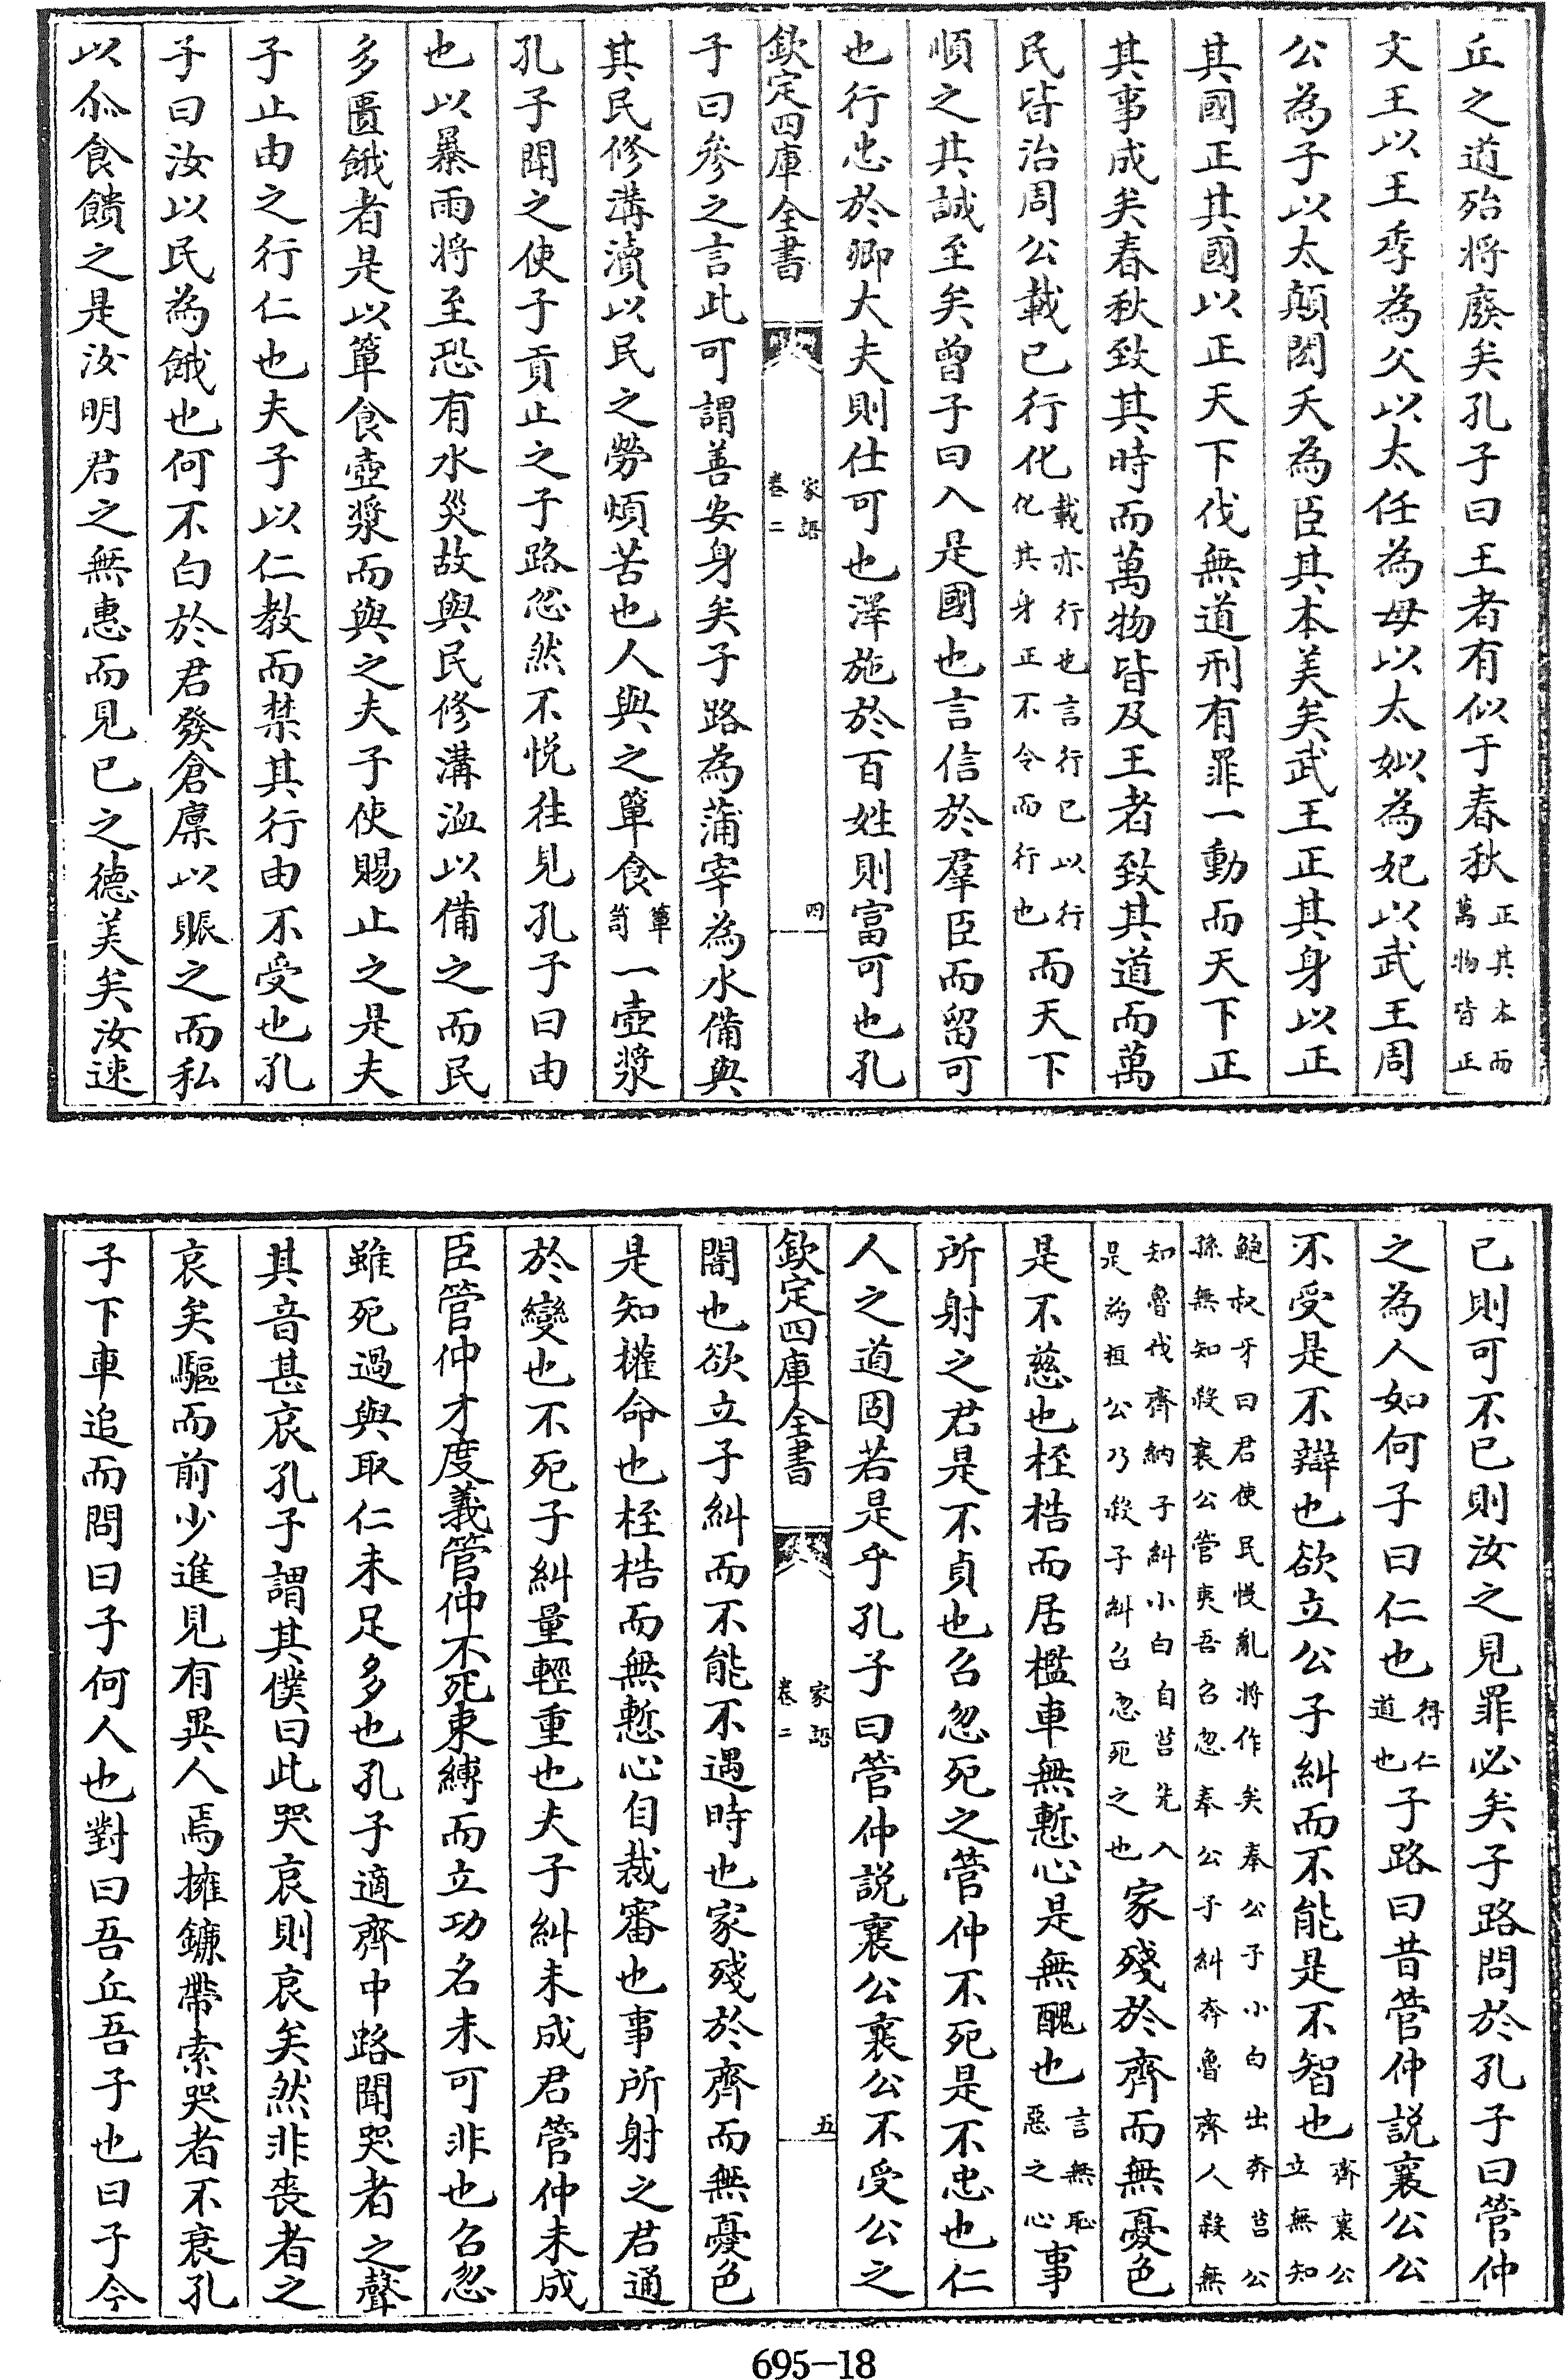 丘之道殆将廢矣孔子曰王者有似于春秋正其本而萬物皆正
文王以王季為父以太任為母以太姒為妃以武王周
公為子以太顛閎夭為臣其本美矣武王正其身以正
其國正其國以正天下伐無道刑有罪一動而天下正
其事成矣春秋致其時而萬物皆及王者致其道而萬
民皆治周公載已行化載亦行也言行已以行化其身正不令而行也而天下
順之其誠至矣曾子曰入是國也言信於羣臣而留可
也行忠於卿大夫則仕可也澤施於百姓則富可也孔
欽定四庫全書
家語
卷二
四
子曰參之言此可謂善安身矣子路為蒲宰為水備與
其民修溝瀆以民之勞煩苦也人與之簞食簞笥一壺漿
孔子聞之使子貢止之子路忿然不悦徃見孔子曰由
也以暴雨将至恐有水災故與民修溝洫以備之而民
多匱餓者是以簞食壺漿而與之夫子使賜止之是夫
子止由之行仁也夫子以仁教而禁其行由不受也孔
子曰汝以民為餓也何不白於君發倉廩以賑之而私
以尒食饋之是汝明君之無惠而見已之德美矣汝速
已則可不已則汝之見罪必矣子路問於孔子曰管仲
之為人如何子曰仁也得仁道也子路曰昔管仲説襄公公
不受是不辯也欲立公子糾而不能是不智也齊襄公立無知
鮑叔牙曰君使民慢亂将作矣奉公子小白出奔莒公孫無知殺襄公管夷吾召忽奉公子糾奔魯齊人殺無
知魯伐齊納子糾小白自莒先入是為桓公乃殺子糾召忽死之也家殘於齊而無憂色
是不慈也桎梏而居檻車無慙心是無醜也言無恥惡之心事
所射之君是不貞也召忽死之管仲不死是不忠也仁
人之道固若是乎孔子曰管仲説襄公襄公不受公之
欽定四庫全書
家語
卷二
五
闇也欲立子糾而不能不遇時也家殘於齊而無憂色
是知權命也桎梏而無慙心自裁審也事所射之君通
於變也不死子糾量輕重也夫子糾未成君管仲未成
臣管仲才度義管仲不死束縛而立功名未可非也召忽
雖死過與取仁未足多也孔子適齊中路聞哭者之聲
其音甚哀孔子謂其僕曰此哭哀則哀矣然非喪者之
哀矣驅而前少進見有異人焉擁鐮帶索哭者不衰孔
子下車追而問曰子何人也對曰吾丘吾子也曰子今
695-18